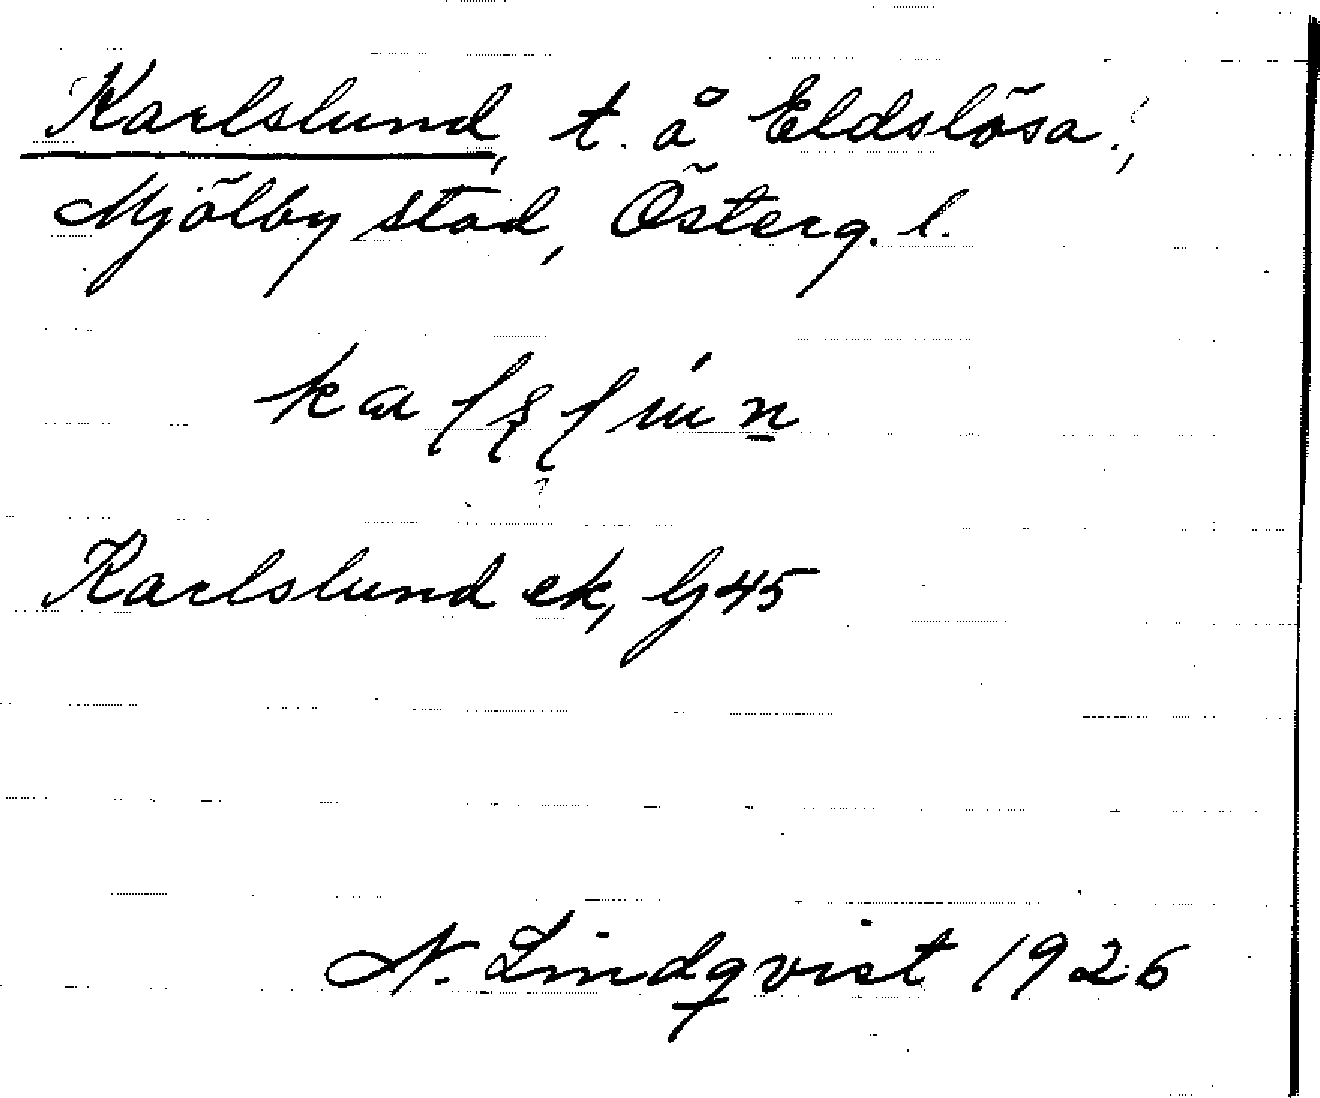 Karlslund, t. å Eldslösa.,
Mjölby stad, Österg. l.
Karlslund ek, G45
N. Lindqvist 1926